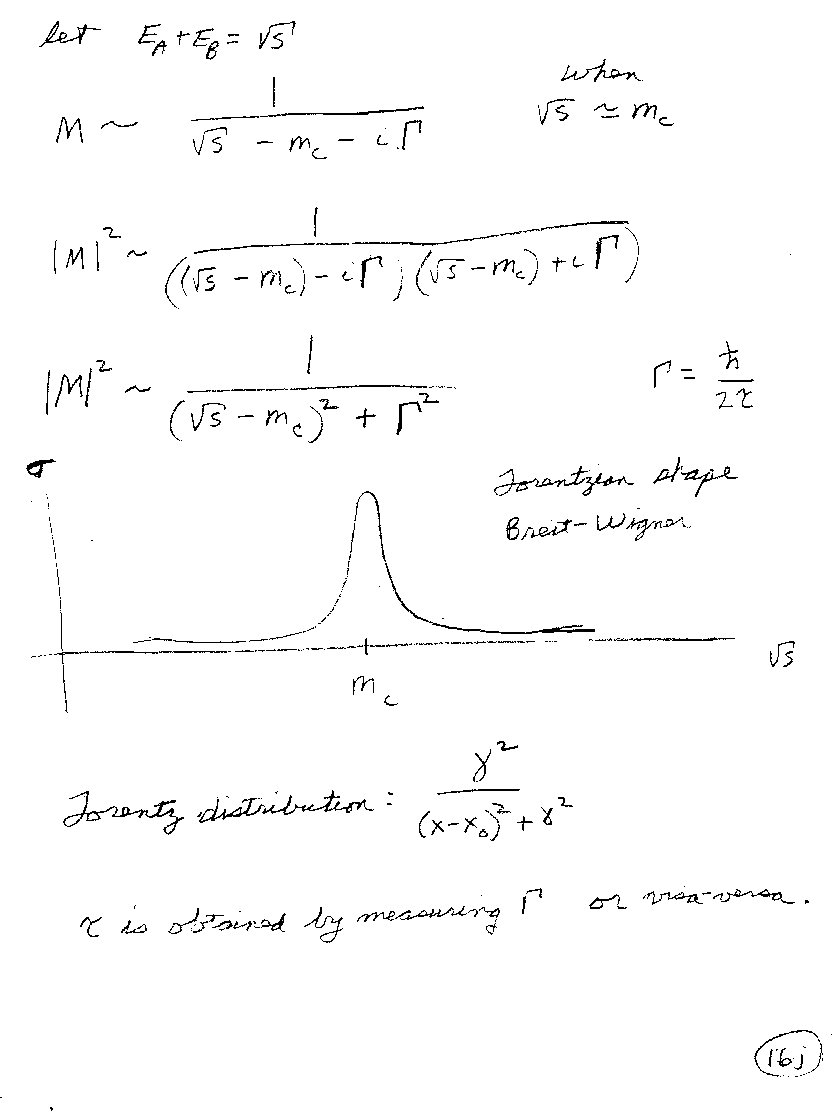 let E_A + E_B = √s
M ~ 1 / (√s - m_c - iΓ) when √s ≃ m_c
|M|² ~ 1 / (((√s - m_c) - iΓ)((√s - m_c) + iΓ))
|M|² ~ 1 / ((√s - m_c)² + Γ²) Γ = ħ / 2τ
σ
Lorentzian shape
Breit-Wigner
√s
m_c
Lorentz distribution: γ² / ((x-x₀)² + γ²)
τ is obtained by measuring Γ or visa-versa.
16j